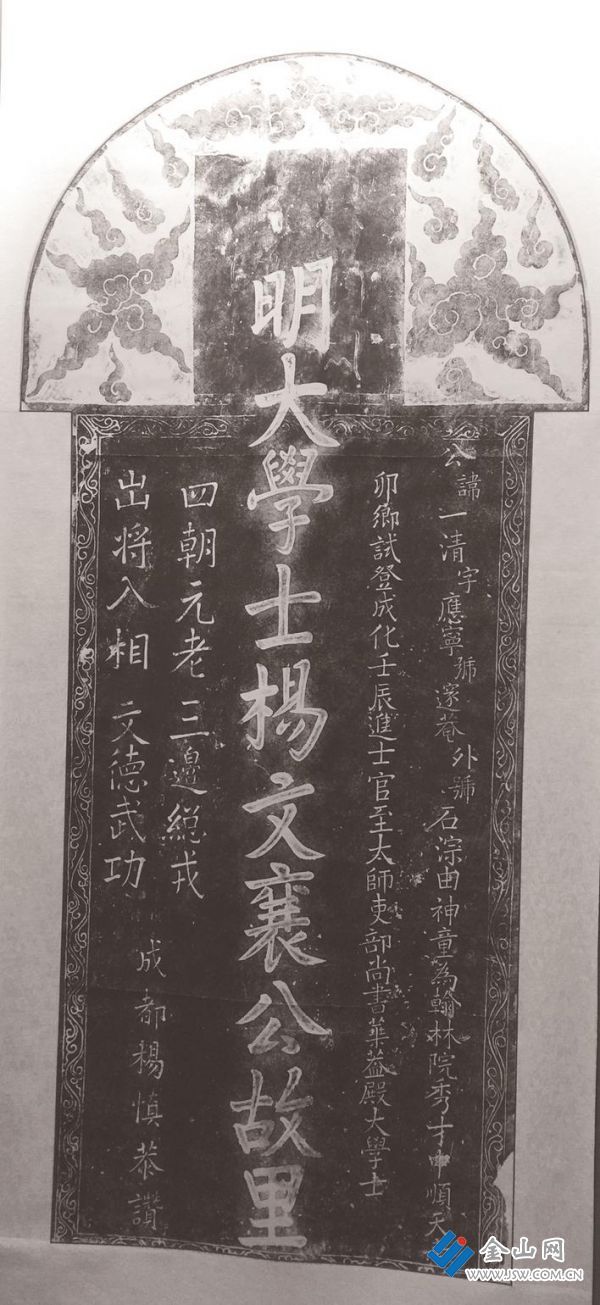 公諱一清字應寧號邃菴外號石淙由神童為翰林院秀才中順天
卯鄉試登成化壬辰進士官至太師吏部尚書華蓋殿大學士
明大學士楊文襄公故里
四朝元老三邊總戎
出將入相文德武功
成都楊慎恭讚
金山网
WWW.JSW.COM.CN